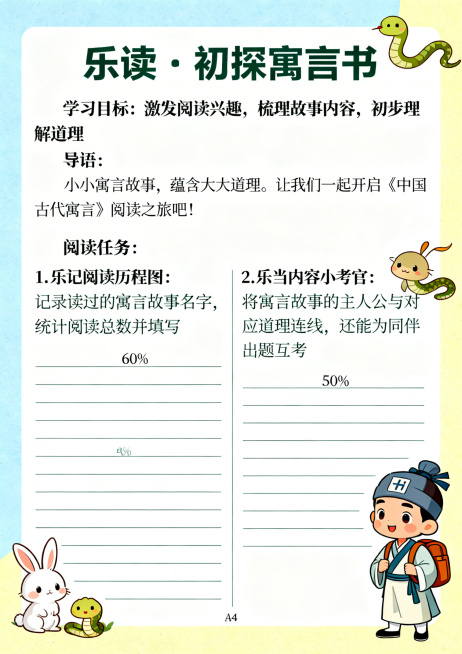 乐读·初探寓言书
学习目标：激发阅读兴趣，梳理故事内容，初步理
解道理
导语：
小小寓言故事，蕴含大大道理。让我们一起开启《中国
古代寓言》阅读之旅吧！
阅读任务：
1.乐记阅读历程图：
记录读过的寓言故事名字，
统计阅读总数并填写
60%
2.乐当内容小考官：
将寓言故事的主人公与对
应道理连线，还能为同伴
出题互考
50%
A4